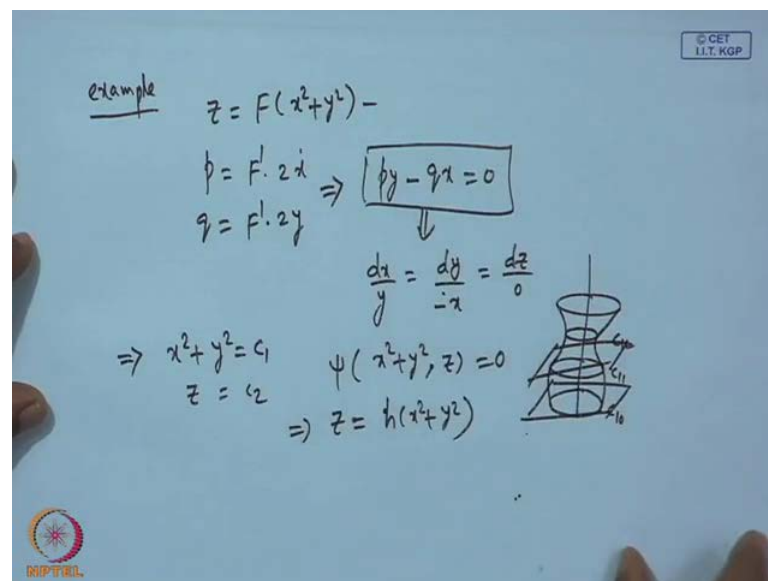 © CET
I.I.T. KGP
example
z = F(x²+y²) -
p = F'. 2x
q = F'. 2y
⇒ py - qx = 0
⇓
dx/y = dy/-x = dz/0
⇒ x²+y² = c₁
z = c₂
ψ(x²+y², z) = 0
⇒ z = h(x²+y²)
c₁₁
c₁₀
NPTEL